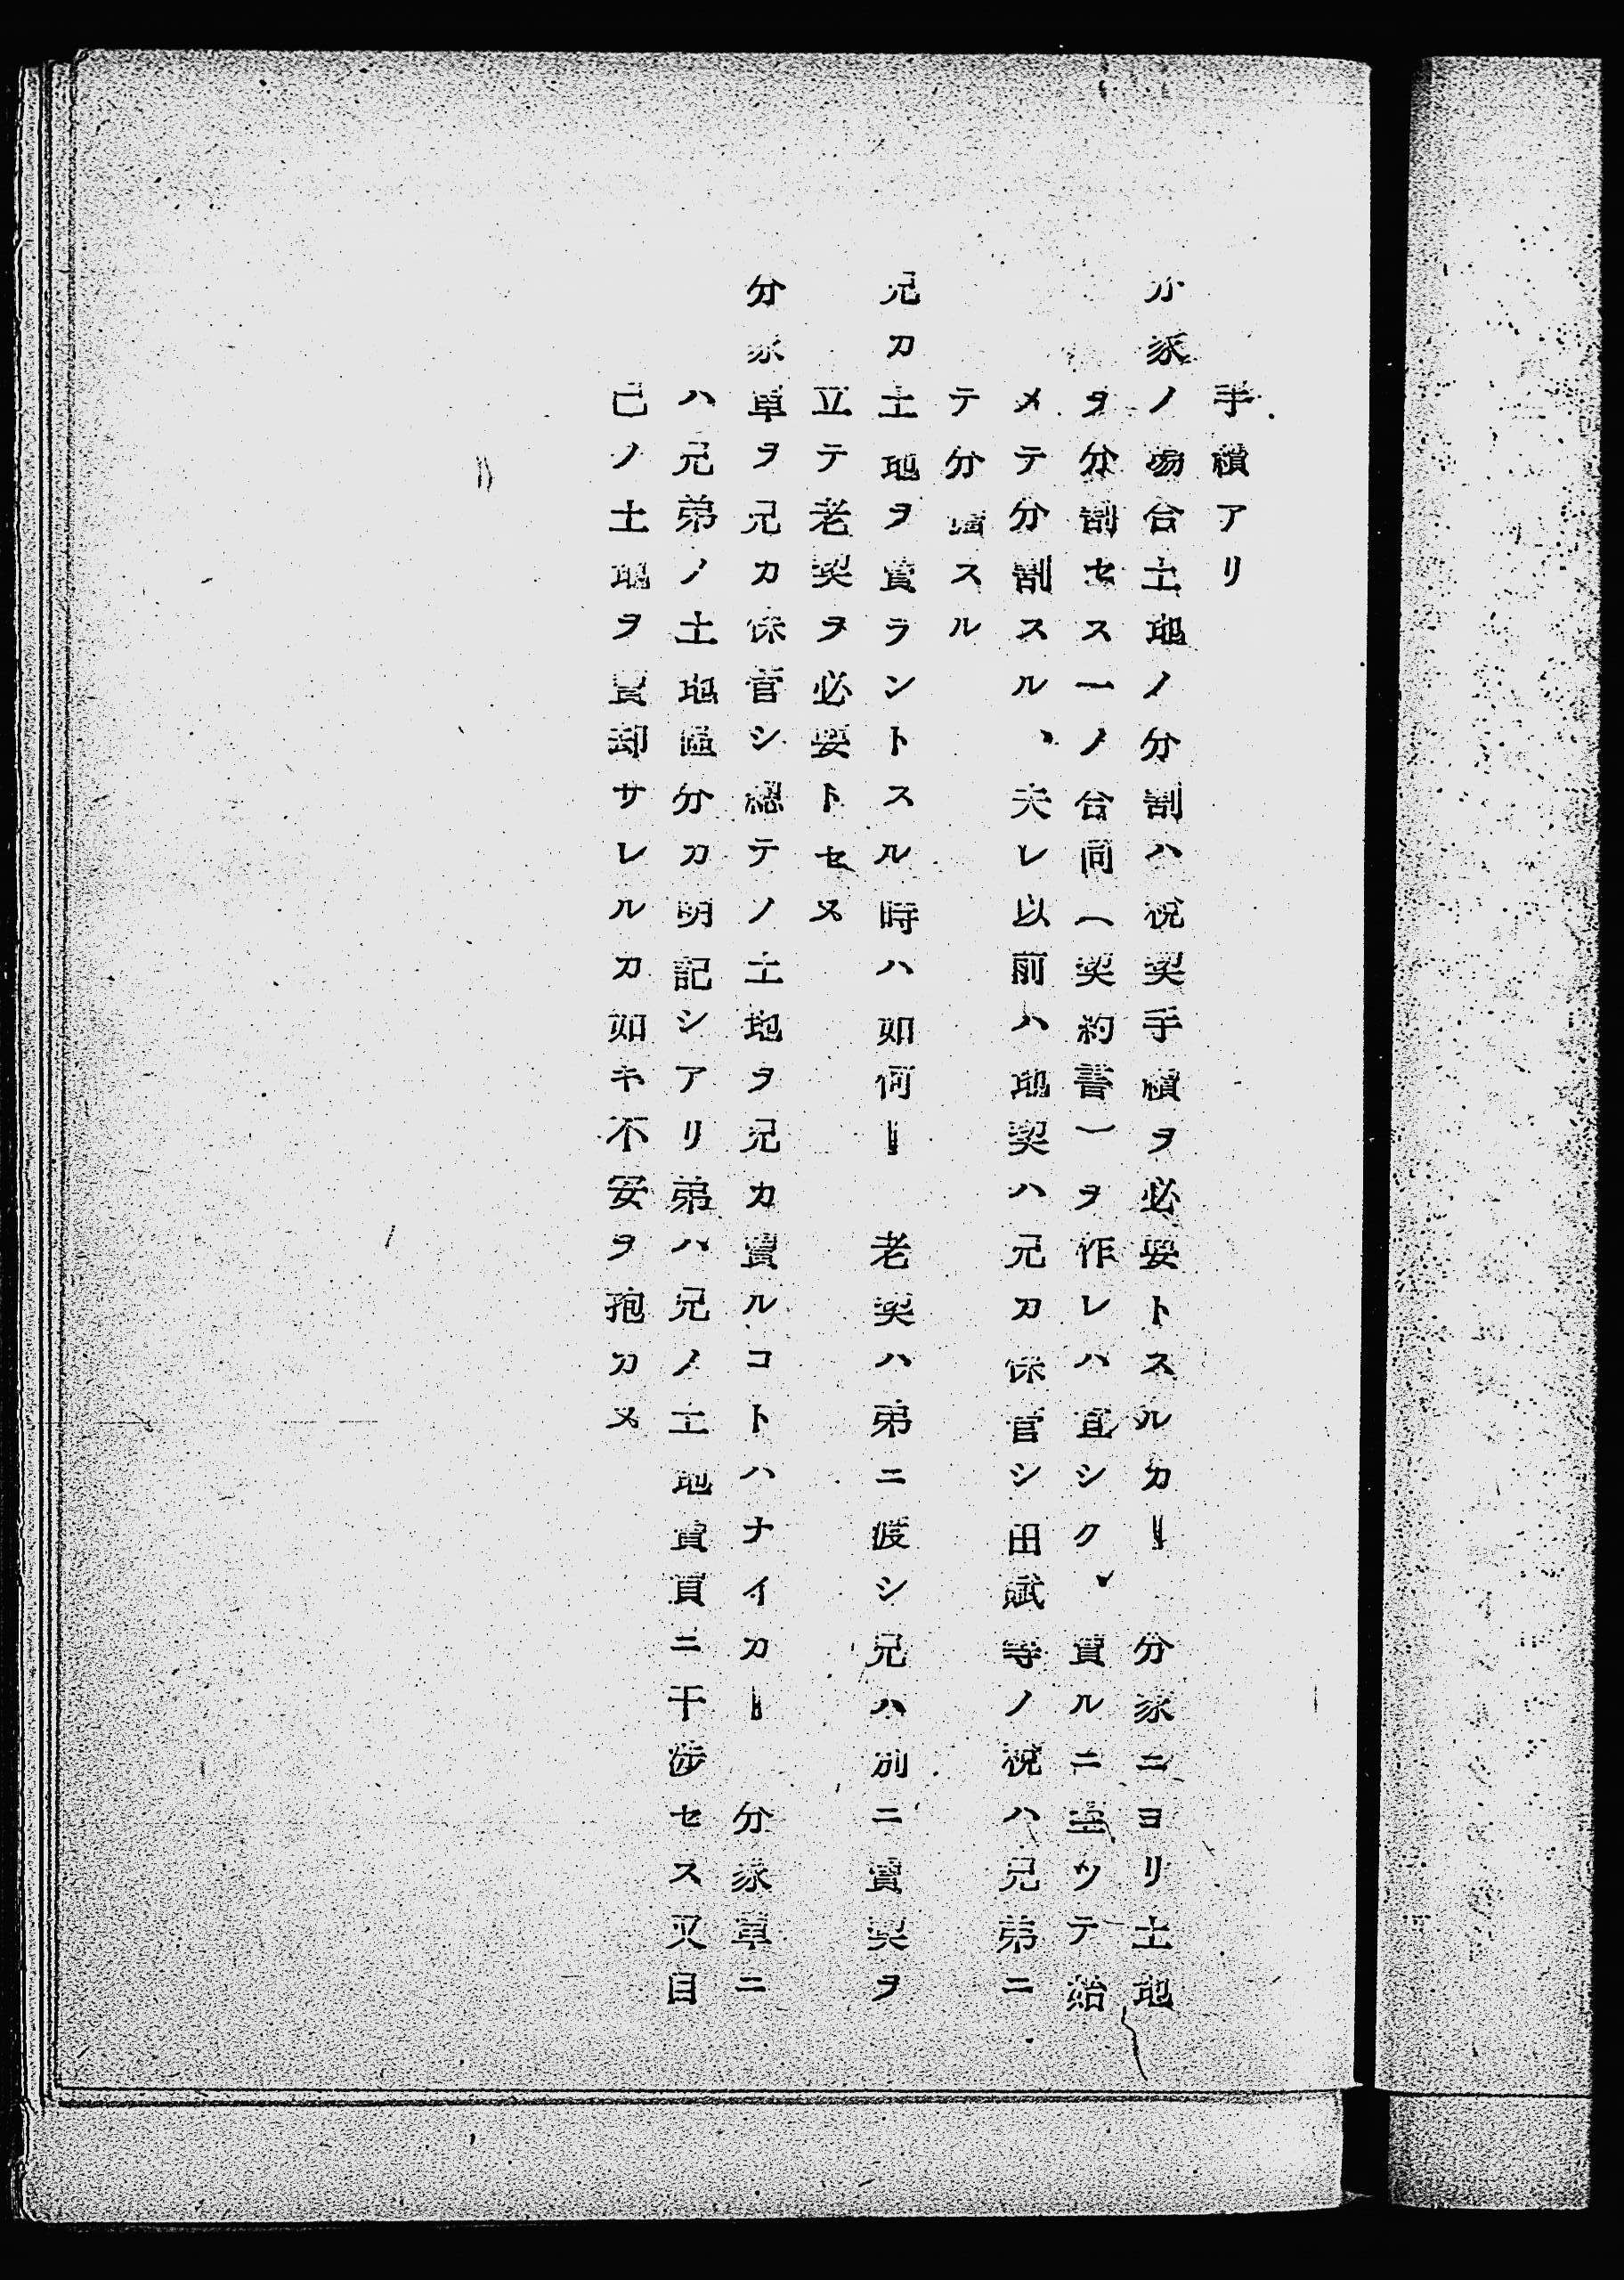 手續アリ
分家ノ場合土地ノ分割ハ税契手續ヲ必要トスルカ‖　分家ニヨリ土地
ヲ分割セス一ノ合同(契約書)ヲ作レハ宜シク、賣ルニ至ツテ始
メテ分割スル、夫レ以前ハ地契ハ兄カ保管シ田賦等ノ税ハ兄弟ニ
テ分擔スル
兄カ土地ヲ賣ラントスル時ハ如何‖　老契ハ弟ニ渡シ兄ハ別ニ賣契ヲ
立テ老契ヲ必要トセヌ
分家單ヲ兄カ保管シ總テノ土地ヲ兄カ賣ルコトハナイカ‖　分家單ニ
ハ兄弟ノ土地區分カ明記シアリ弟ハ兄ノ土地賣買ニ干渉セス又自
己ノ土地ヲ賣却サレルカ如キ不安ヲ抱カヌ